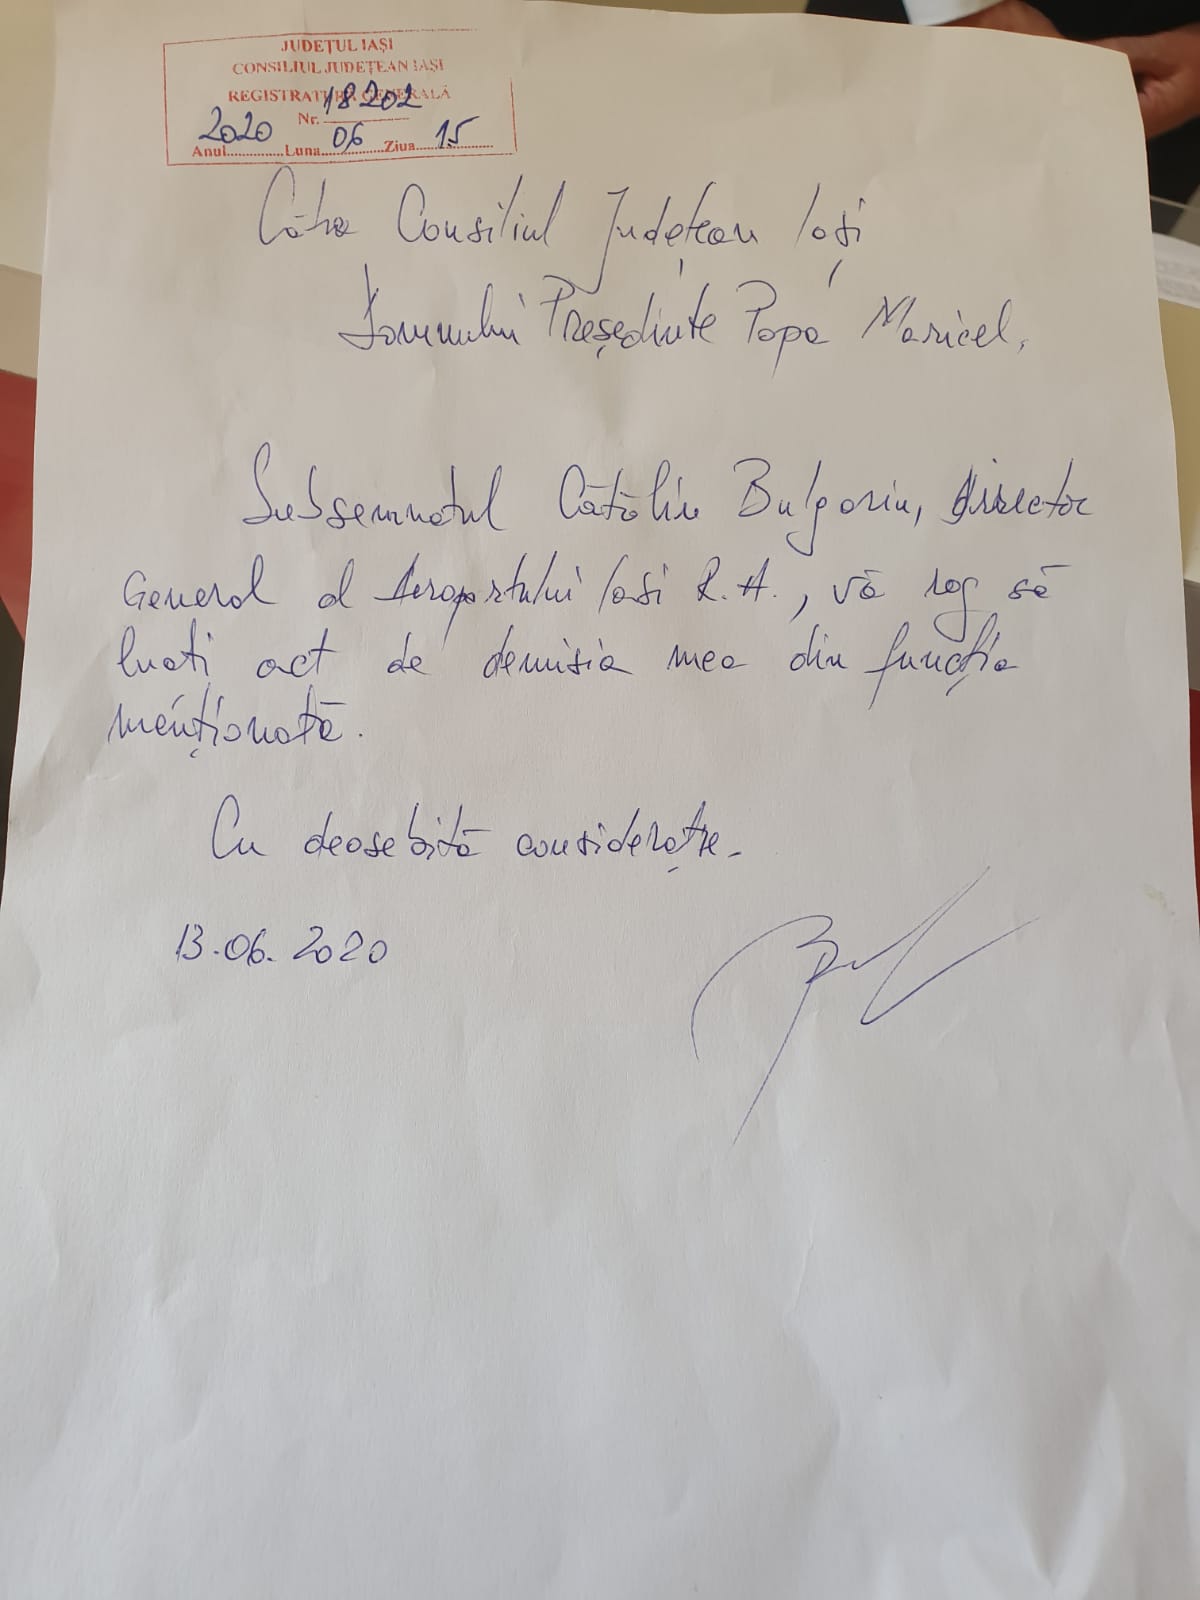 JUDEŢUL IAŞI
CONSILIUL JUDEŢEAN IAŞI
REGISTRATURA GENERALĂ
Nr. 18202
Anul 2020 Luna 06 Ziua 15
Către Consiliul Județean Iași
Domnului Președinte Popa Maricel,
Subsemnatul Cătălin Bulgariu, director
General al Aeroportului Iasi R.A., vă rog să
luati act de demisia mea din funcția
menționată.
Cu deosebită considerație.
13.06.2020